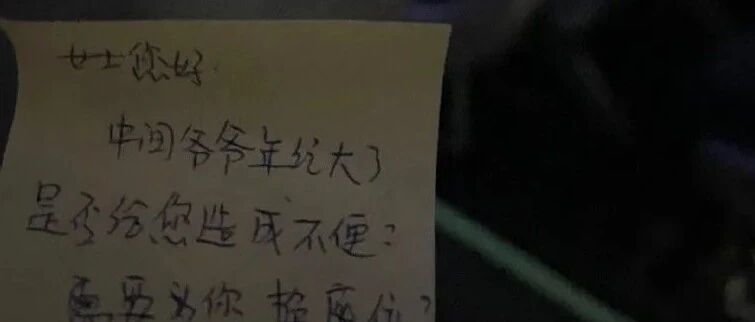 女士您好
中间爷爷年纪大了
是否给您造成不便？
需要为你换座位？